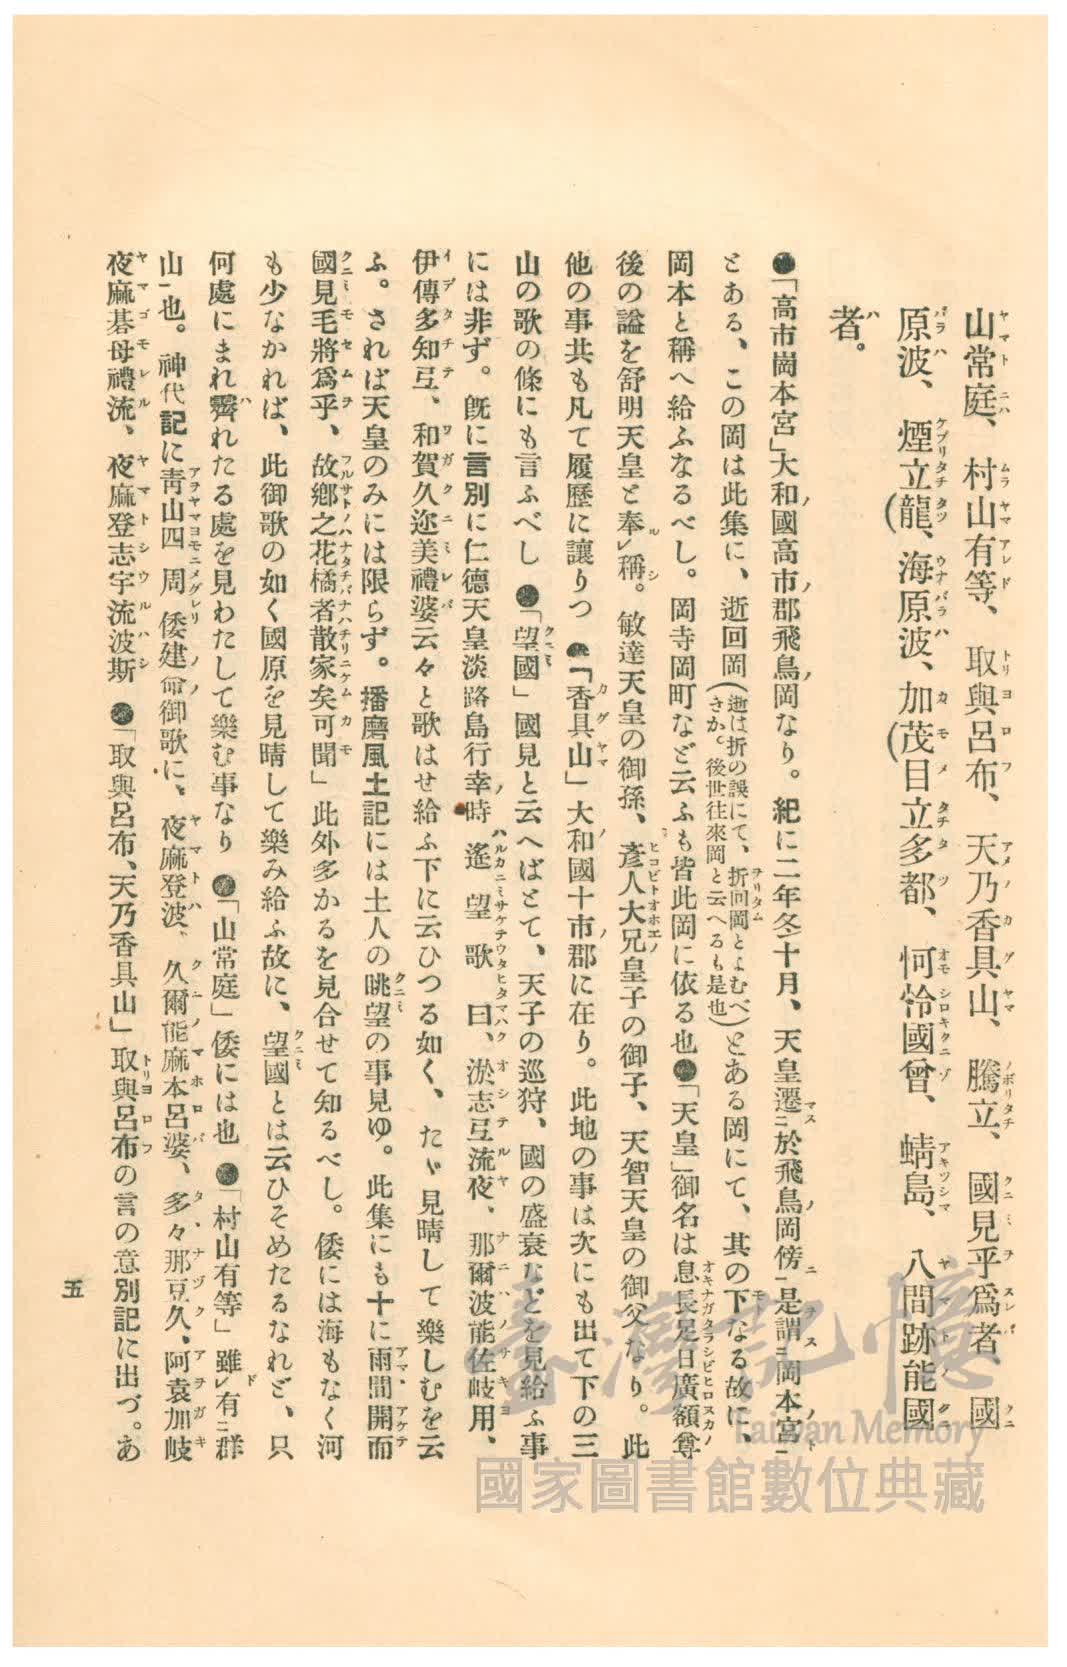 山常庭、村山有等、取與呂布、天乃香具山、騰立、國見乎爲者、國
原波、煙立龍、海原波、加茂目立多都、怜國曾、蜻島、八間跡能國
者。
●「高市崗本宮」大和國高市郡飛鳥岡なり。紀に二年冬十月、天皇遷於飛鳥岡傍、是謂岡本宮
とある、この岡は此集に、逝回岡(逝は折の誤にて、折回岡とよむべきか、後世往來岡と云へるも是也)とある岡にて、其の下なる故に、
岡本と稱へ給ふなるべし。岡寺岡町など云ふも皆此岡に依る也●「天皇」御名は息長足日廣額尊
後の謚を舒明天皇と奉レ稱。敏達天皇の御孫、彥人大兄皇子の御子、天智天皇の御父なり。此
他の事共も凡て履歷に讓りつ●「香具山」大和國十市郡に在り。此地の事は次にも出て下の三
山の歌の條にも言ふべし●「望國」國見と云へばとて、天子の巡狩、國の盛衰などを見給ふ事
には非ず。旣に言別に仁德天皇淡路島行幸時遙望歌曰、淤志弖流夜、那爾波能佐岐用、
伊傳多知弖、和賀久邇美禮婆云々と歌はせ給ふ下に云ひつる如く、たゞ見晴して樂しむを云
ふ。されば天皇のみには限らず。播磨風土記には土人の眺望の事見ゆ。此集にも十に雨間開而
國見毛將爲乎、故鄕之花橘者散家矣可聞」此外多かるを見合せて知るべし。倭には海もなく河
も少なかれば、此御歌の如く國原を見晴して樂み給ふ故に、望國とは云ひそめたるなれど、只
何處にまれ霽れたる處を見わたして樂む事なり●「山常庭」倭には也●「村山有等」雖レ有群
山也。神代記に靑山四周倭建命御歌に、夜麻登波、久爾能麻本呂婆、多々那豆久、阿袁加岐
夜麻碁母禮流、夜麻登志宇流波斯●「取與呂布、天乃香具山」取與呂布の言の意別記に出づ。あ
五
臺灣記憶
Taiwan Memory
國家圖書館數位典藏